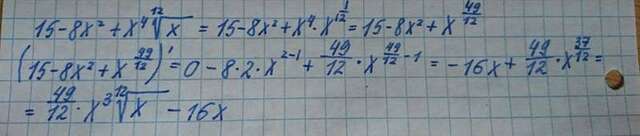 15-8x²+x⁴ ¹²√x = 15-8x²+x⁴·x^(1/12) = 15-8x²+x^(49/12)
(15-8x²+x^(49/12))' = 0-8·2·x^(2-1)+49/12·x^(49/12-1) = -16x+49/12·x^(37/12) =
= 49/12·x³ ¹²√x - 16x